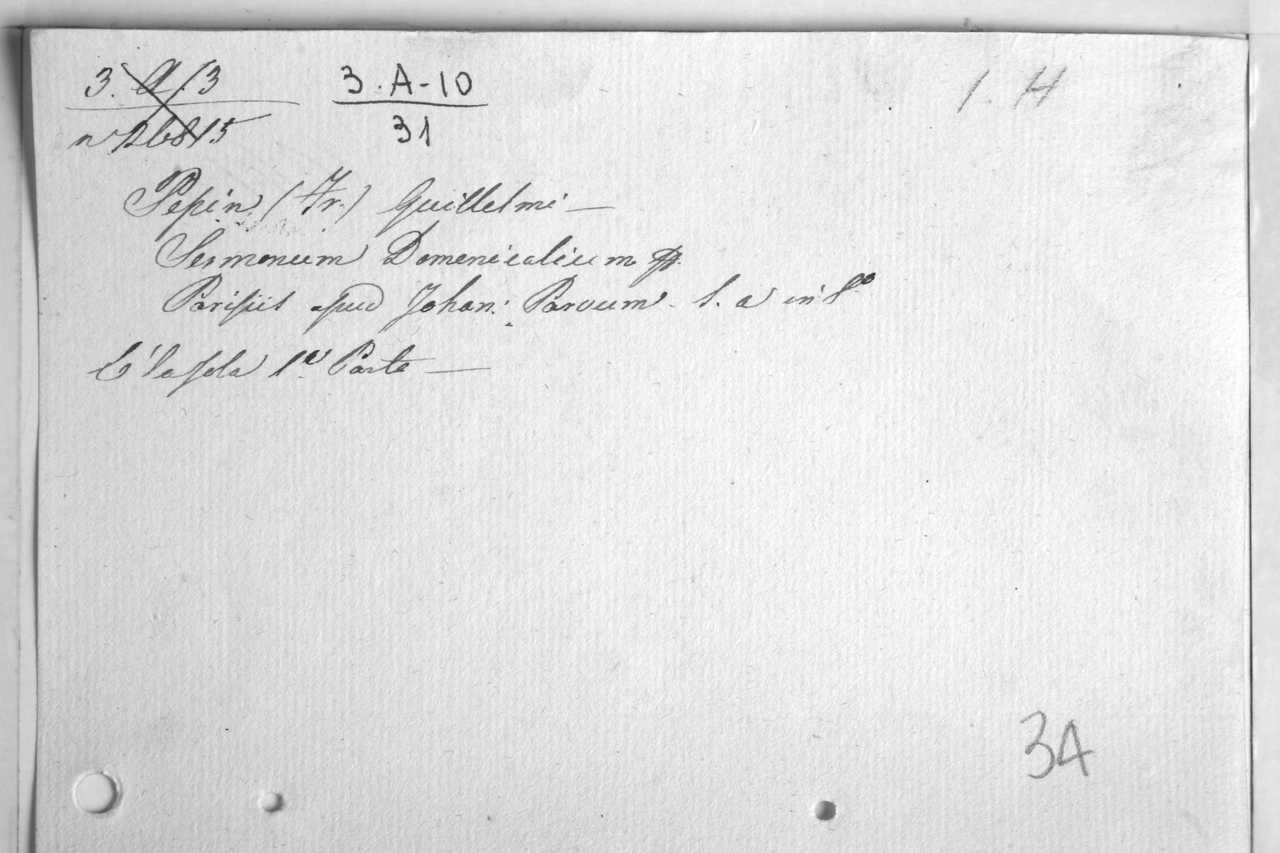 3. A/3
3. A-10
1. H
nº 26815
31
Pepin (Fr.) Guillelmi —
Sermonum Domenicalium
Parisiis apud Johan: Parvum. s. a in 8º
E' la sola 1ª Parte —
34